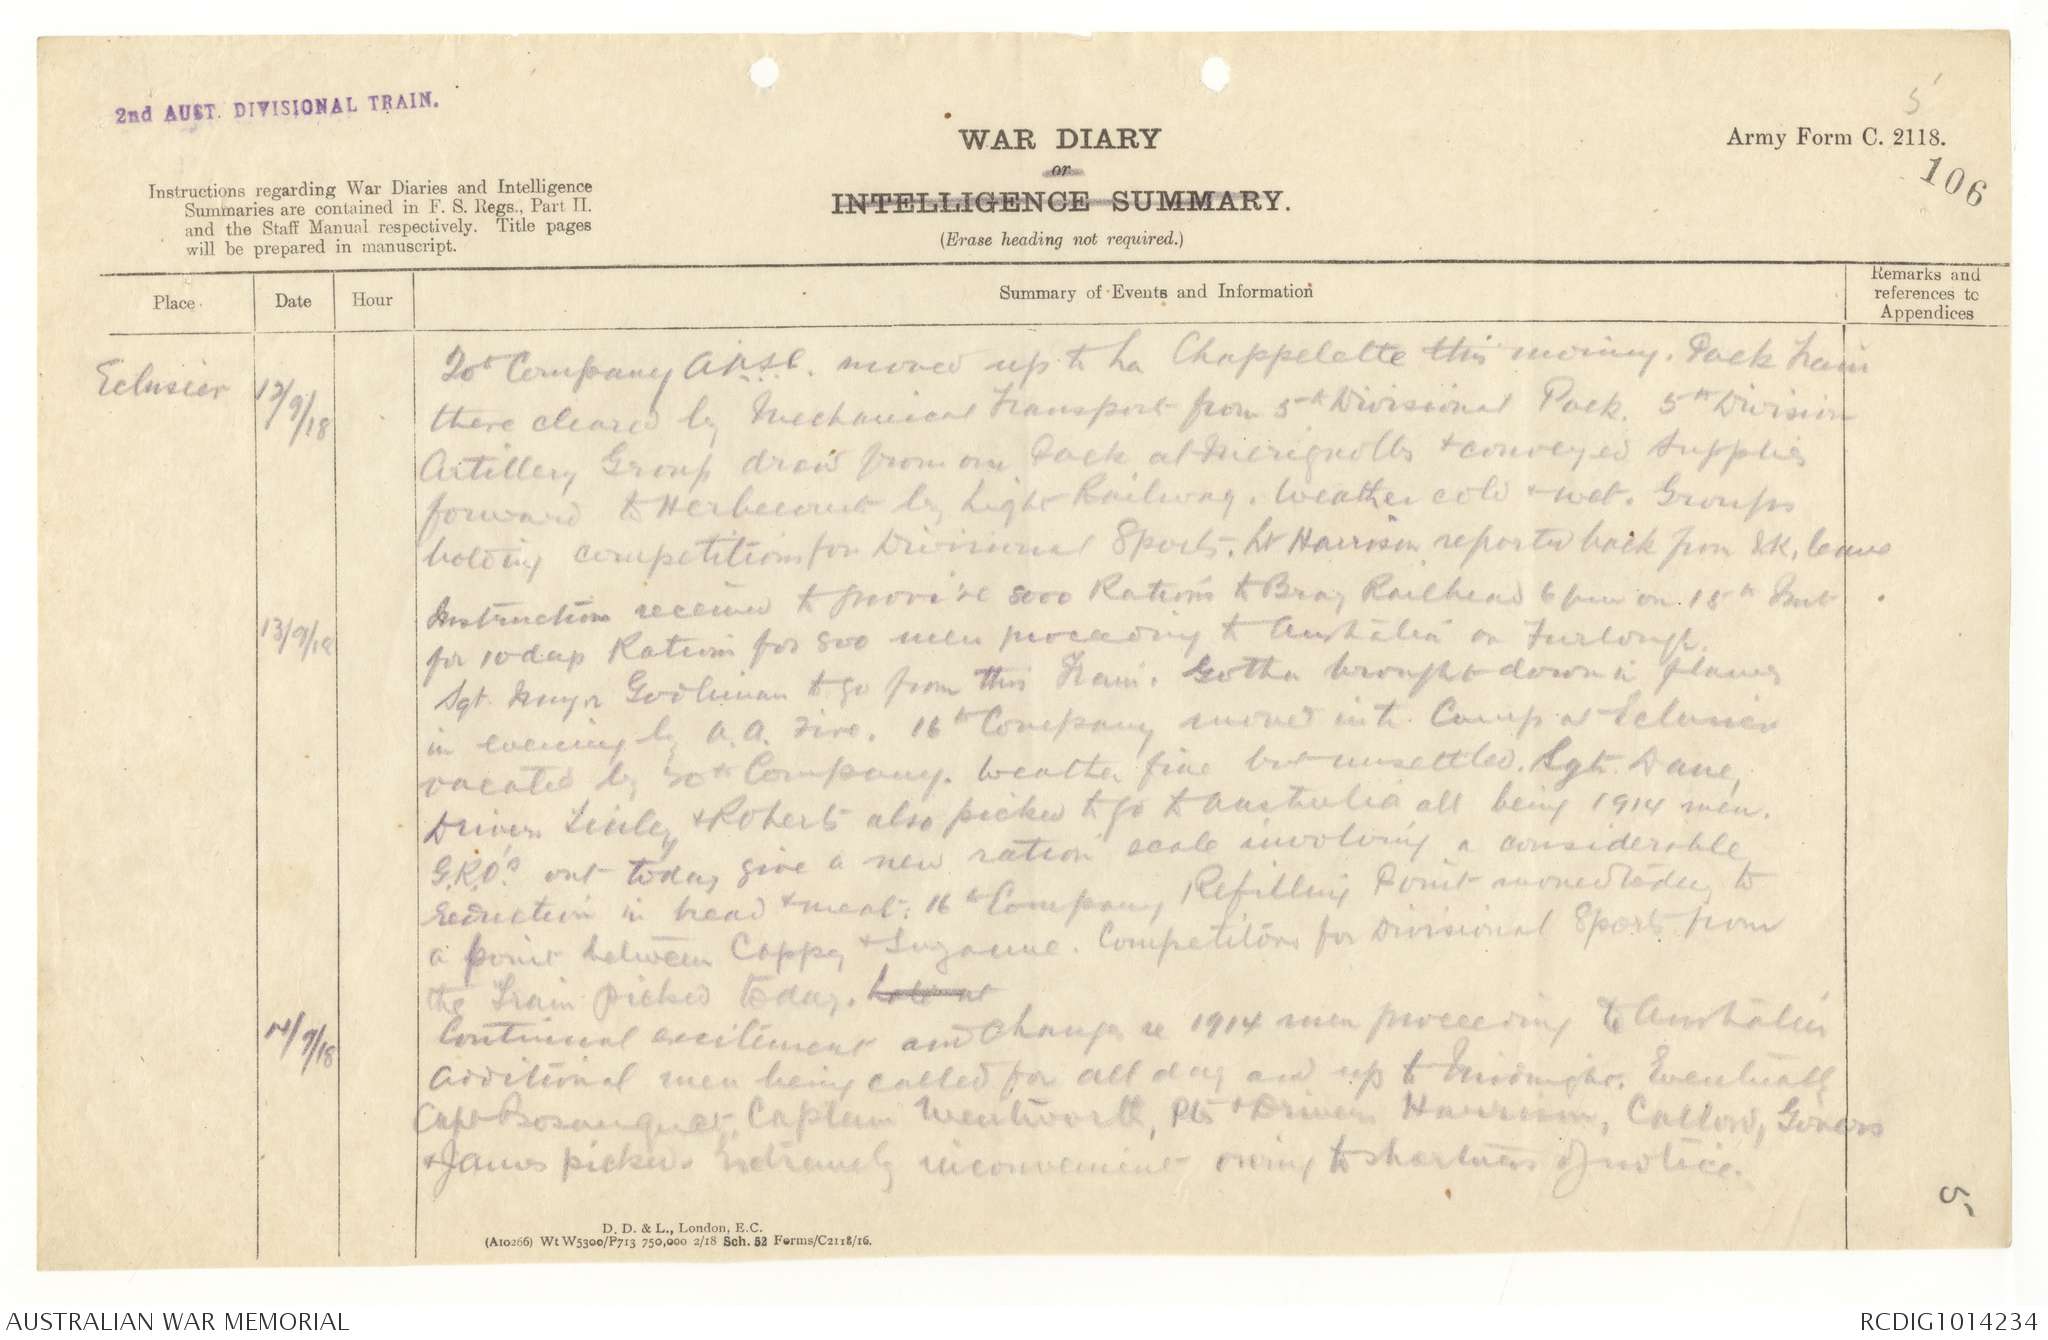 2nd AUST. DIVISIONAL TRAIN.
5
WAR DIARY
or
INTELLIGENCE SUMMARY.
(Erase heading not required.)
Army Form C. 2118.
106
Instructions regarding War Diaries and Intelligence
Summaries are contained in F. S. Regs., Part II.
and the Staff Manual respectively. Title pages
will be prepared in manuscript.
Place
Date
Hour
Summary of Events and Information
Remarks and
references to
Appendices
Eclusier 12/9/18 20th Company A.A.S.C. moved up to La Chappelette this morning. Pack Train
there cleared by Mechanical Transport from 5th Divisional Pack. 5th Division
Artillery Group draw from our Pack at Merignolles & conveyed supplies
forward to Herbecourt by Light Railway. Weather cold & wet. Groups
holding competitions for Divisional Sports. Lt Harrison reported back from U.K. leave
13/9/18 Instructions received to provide 8000 Rations to Bray Railhead 6 pm on 15th Inst
for 10 days Rations for 800 men proceeding to Australia on Furlough.
Sgt Major to go from this Train. Gotha brought down in flames
in evening by A.A. Fire. 16th Company moved into Camp at Eclusier
vacated by 20th Company. Weather fine but unsettled. Sgt. Dane,
Drivers & Roberts also picked to go to Australia all being 1914 men.
G.R.O's. out today give a new ration scale involving a considerable
reduction in bread & meat. 16th Company Refilling Point moved today to
a point between Cappy & Suzanne. Competitors for Divisional Sports from
the Train picked today.
14/9/18 Continual excitement and changes re 1914 men proceeding to Australia
Additional men being called for all day and up to Midnight. Eventually
Capt Bosanquet, Captain Wentworth, Pts & Drivers Harrison, Callow, Govers
& James picked. Extremely inconvenient owing to shortness of notice.
5
D. D. & L., London, E.C.
(A10266) Wt W5300/P713 750,000 2/18 Sch. 52 Forms/C2118/16.
AUSTRALIAN WAR MEMORIAL
RCDIG1014234